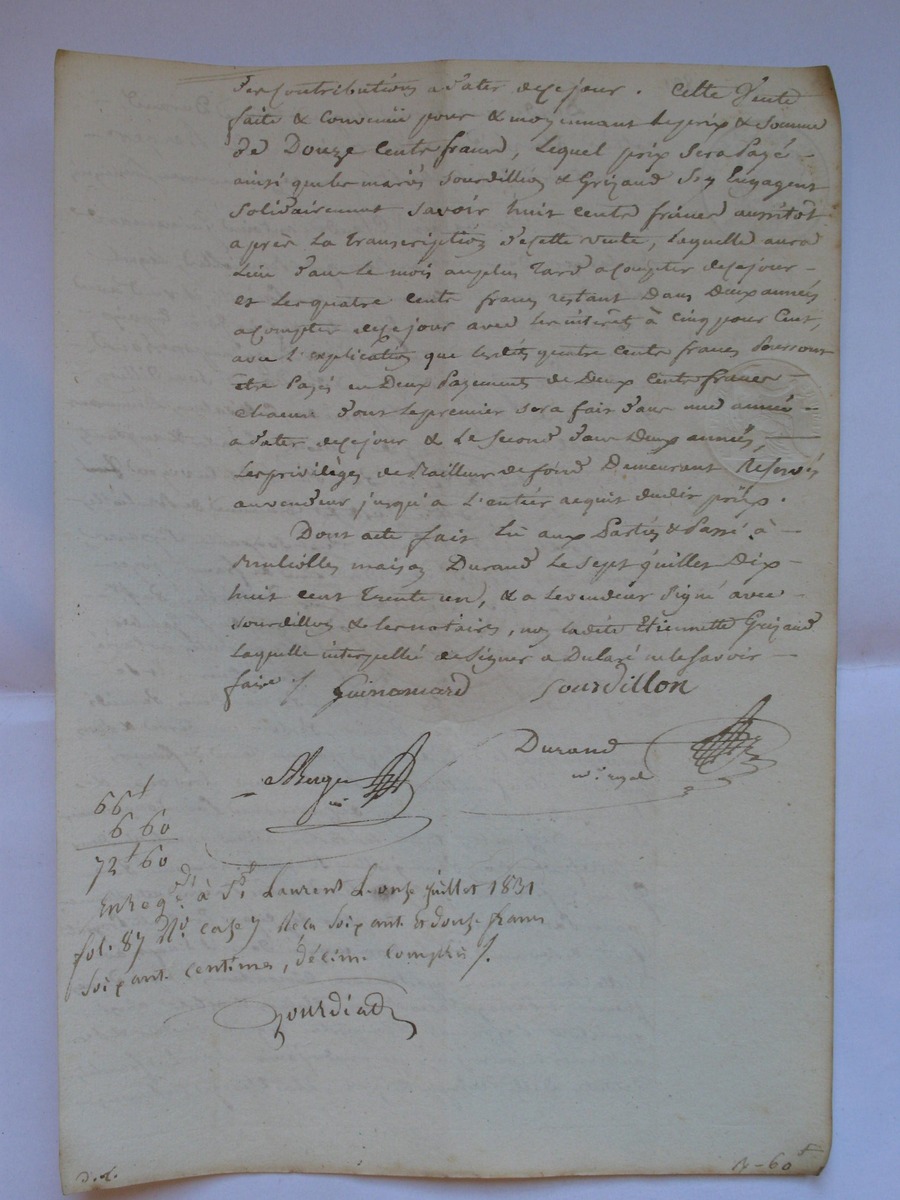 des Contributions a dater dece jour. Cette Vente
faite & convenüe pour & moyennant Le prix & somme
de Douze Cents francs, Lequel prix sera Payé
ainsi que les mariés Sourdillon & Grizaud s'y Engagent
Solidairement savoir huit cents francs aussitôt
après La transcription decette vente, Laquelle aura
Lieu dans Le mois auplus Tard acompter decejour
et Les quatre cents francs restant Dans Deux années
acompter decejour avec les intérêts à Cinq pour Cent,
avec L'explication que lesdits quatre cents francs Pourront
être Payés en Deux Payements de Deux Cents francs
chacun dont Le premier sera fait dans une année
a dater decejour & Le Second dans Deux années,
Les privilèges de Bailleur de fond Demeurant réservés
au vendeur jusqu'a L'entier acquit dudit prix.
Dont acte fait Lu aux Parties & Passé à
maison Durand Le sept juillet Dix
huit cent Trente un, & a Levendeur Signé avec
Sourdillon & les notaires, non ladite Etiennette Grizaud
Laquelle interpellée de signer a Déclaré ne le Savoir
faire ./. Sourdillon
Durand
n.re royal
66f
6 60
72f 60
Enregé. à St. Laurent Le onze juillet 1831
fol. 87 Ro. case 7 Reçu Soixante et douze francs
soixante centimes, décime compris ./.
60